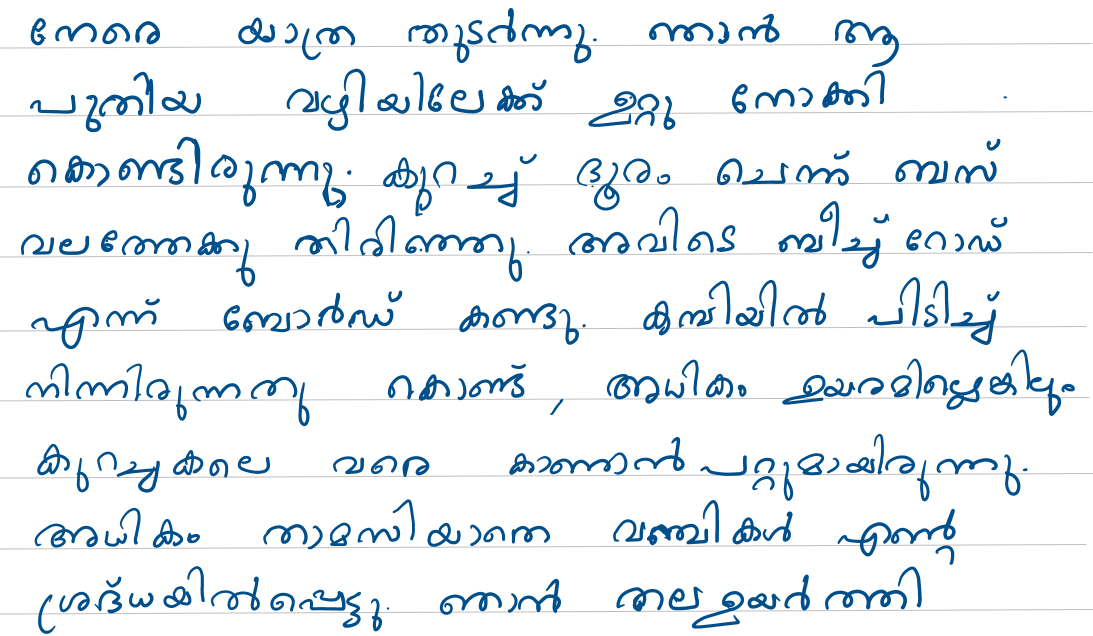 നേരെ യാത്ര തുടർന്നു. ഞാൻ ആ
പുതിയ വഴിയിലേക്ക് ഉറ്റു നോക്കി
കൊണ്ടിരുന്നു. കുറച്ച് ദൂരം ചെന്ന് ബസ്
വലത്തേക്കു തിരിഞ്ഞു. അവിടെ ബീച്ച് റോഡ്
എന്ന് ബോർഡ് കണ്ടു. കമ്പിയിൽ പിടിച്ച്
നിന്നിരുന്നതു കൊണ്ട്, അധികം ഉയരമില്ലെങ്കിലും
കുറച്ചകലെ വരെ കാണാൻ പറ്റുമായിരുന്നു.
അധികം താമസിയാതെ വഞ്ചികൾ എന്റെ
ശ്രദ്ധയിൽപ്പെട്ടു. ഞാൻ തലഉയർത്തി